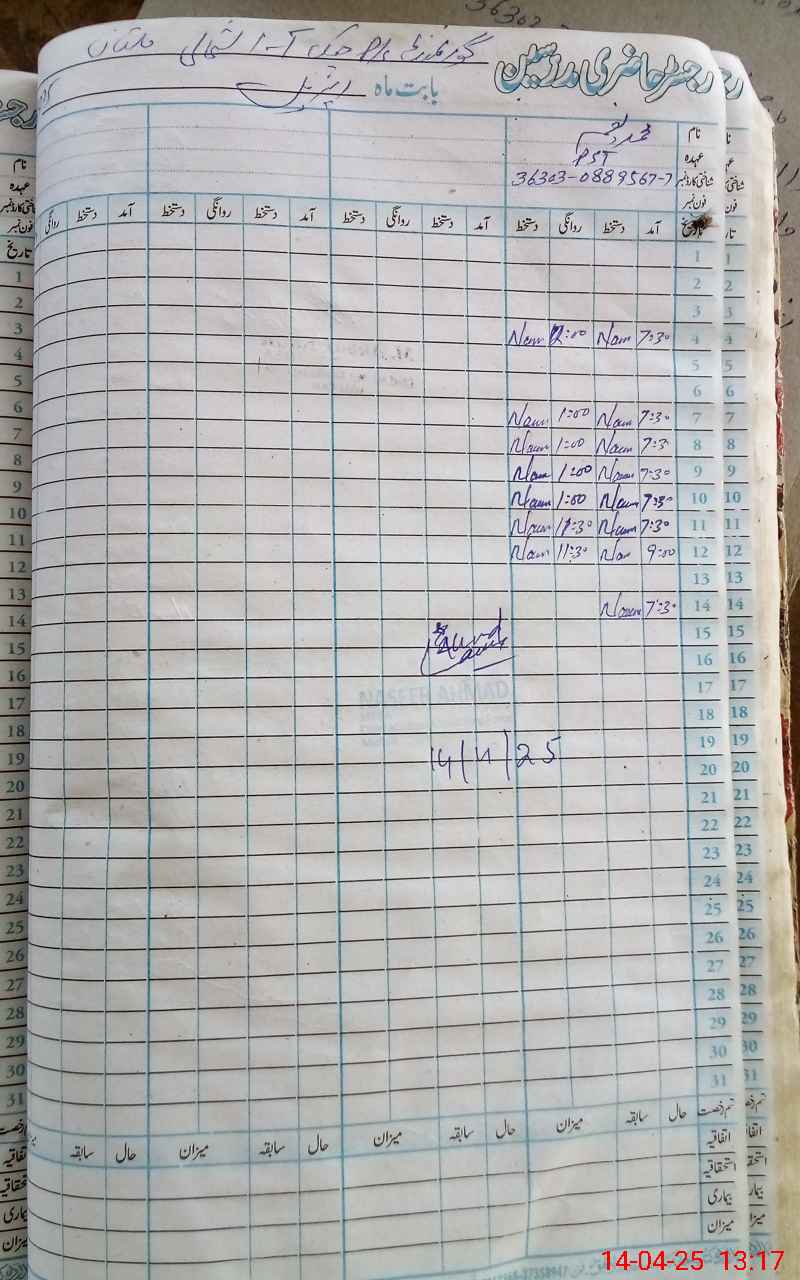 رجسٹر حاضری مدرسین
بابت ماہ اپریل
نام محمد نعیم
عہدہ PST
شناختی کارڈ نمبر 36303-0889567-7
فون نمبر
تاریخ آمد دستخط روانگی دستخط آمد دستخط روانگی دستخط آمد دستخط روانگی دستخط آمد دستخط روانگی
1
2
3
4 7:30 Naum 12:00 Naum
5
6
7 7:30 Naum 1:00 Naum
8 7:3 Naum 1:00 Naum
9 7:30 Naum 1:00 Naum
10 7:30 Naum 1:00 Naum
11 7:30 Naum 11:30 Naum
12 9:00 Naum 11:30 Naum
13
14 7:30 Naum
15
16
17 NASEER AHMAD
18
19 14/4/25
20
21
22
23
24
25
26
27
28
29
30
31
قسم رخصت حال سابقہ میزان حال سابقہ میزان حال سابقہ میزان حال سابقہ
اتفاقیہ
استحقاقیہ
بیماری
میزان
14-04-25 13:17